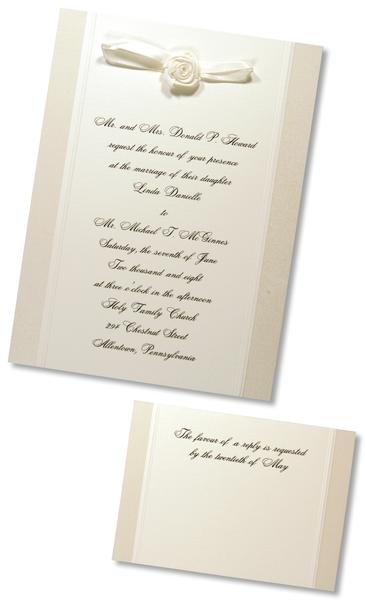 Mr. and Mrs. Donald P. Howard
request the honour of your presence
at the marriage of their daughter
Linda Danielle
to
Mr. Michael T. McGinnes
Saturday, the seventh of June
Two thousand and eight
at three o'clock in the afternoon
Holy Family Church
298 Chestnut Street
Allentown, Pennsylvania
The favour of a reply is requested
by the twentieth of May